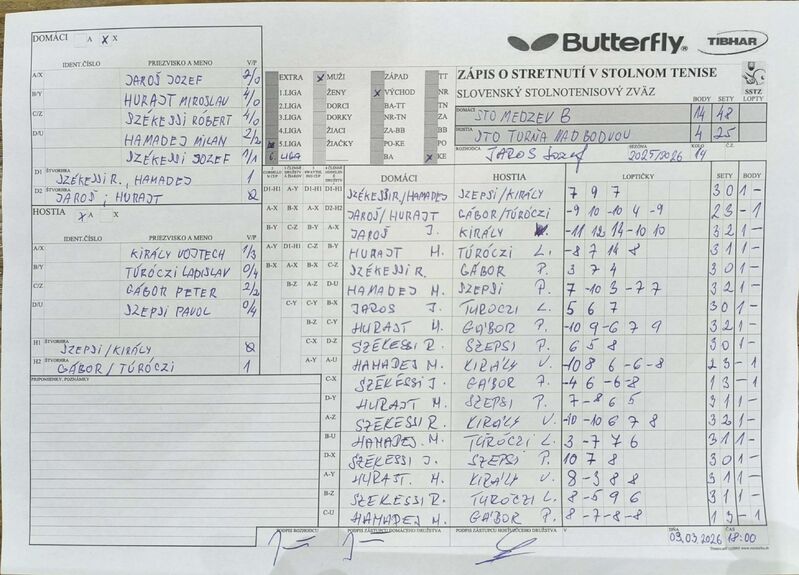 DOMÁCI A X X
IDENT.ČÍSLO PRIEZVISKO A MENO V/P
A/X JAROŠ JOZEF 2/0
B/Y HURAJT MIROSLAV 4/0
C/Z SZÉKESSI RÓBERT 4/0
D/U HAMADEJ MILAN 2/2
SZÉKESSI JOZEF 1/1
D1 ŠTVORHRA SZÉKESSI R., HAMADEJ 1
D2 ŠTVORHRA JAROŠ ; HURAJT
HOSTIA A X
IDENT.ČÍSLO PRIEZVISKO A MENO V/P
A/X KIRÁLY VOJTECH 1/3
B/Y TÚRÓCZI LADISLAV 0/4
C/Z GÁBOR PETER 2/2
D/U SZEPSI PAVOL 0/4
H1 ŠTVORHRA SZEPSI/KIRÁLY
H2 ŠTVORHRA GÁBOR/TÚRÓCZI 1
PRIPOMIENKY, POZNÁMKY
Butterfly TIBHAR
EXTRA X MUŽI ZÁPAD TT
1.LIGA ŽENY X VÝCHOD NR
2.LIGA DORCI BA-TT TN
3.LIGA DORKY NR-TN ZA
4.LIGA ŽIACI ZA-BB BB
5.LIGA ŽIAČKY PO-KE PO
6. LIGA BA X KE
ZÁPIS O STRETNUTÍ V STOLNOM TENISE
SLOVENSKÝ STOLNOTENISOVÝ ZVÄZ
SSTZ
BODY SETY LOPTY
DOMÁCI STO MEDZEV B 14 48
HOSTIA STO TURŇA NAD BODVOU 4 25
ROZHODCA JAROŠ Jozef SEZÓNA 2025/2026 KOLO 14 Č.Z.
DOMÁCI HOSTIA LOPTIČKY SETY BODY
D1-H1 A-Y D1-H1 D1-H1 SZÉKESSI R/HAMADEJ SZEPSI/KIRÁLY 7 9 7 3 0 1 -
A-X B-X A-X D2-H2 JAROŠ/HURAJT GÁBOR/TÚRÓCZI -9 10 -10 4 -9 2 3 - 1
B-Y C-Z B-Y A-X JAROŠ J. KIRÁLY -11 12 14 -10 10 3 2 1 -
A-Y D1-H1 C-Z B-Y HURAJT M. TÚRÓCZI L. -8 7 14 8 3 1 1 -
B-X A-X B-X C-Z SZÉKESSI R. GÁBOR P. 3 7 4 3 0 1 -
B-Z A-Z D-U HAMADEJ M. SZEPSI P. 7 -10 3 -7 7 3 2 1 -
C-Y C-Y B-X JAROŠ J. TÚRÓCZI L. 5 6 7 3 0 1 -
B-Z C-Y HURAJT M. GÁBOR P. -10 9 -6 7 9 3 2 1 -
C-X D-Z SZÉKESSI R. SZEPSI P. 6 5 8 3 0 1 -
A-Y A-U HAMADEJ M. KIRÁLY V. -10 8 6 -6 -8 2 3 - 1
C-X SZÉKESSI J. GÁBOR P. -4 6 -6 -8 1 3 - 1
D-Y HURAJT M. SZEPSI P. 7 -8 6 5 3 1 1 -
A-Z SZÉKESSI R. KIRÁLY V. -10 -10 6 7 8 3 2 1 -
B-U HAMADEJ M. TÚRÓCZI L. 3 -7 7 6 3 1 1 -
D-X SZÉKESSI J. SZEPSI P. 10 7 8 3 0 1 -
A-Y HURAJT M. KIRÁLY V. 8 -3 8 8 3 1 1 -
B-Z SZEKESSI R. TÚRÓCZI L. 8 -5 9 6 3 1 1 -
C-U HAMADEJ M. GÁBOR P. 8 -7 -8 -8 1 3 - 1
PODPIS ROZHODCU PODPIS ZÁSTUPCU DOMÁCEHO DRUŽSTVA PODPIS ZÁSTUPCU HOSŤUJÚCEHO DRUŽSTVA DŇA 09.03.2026 ČAS 18:00